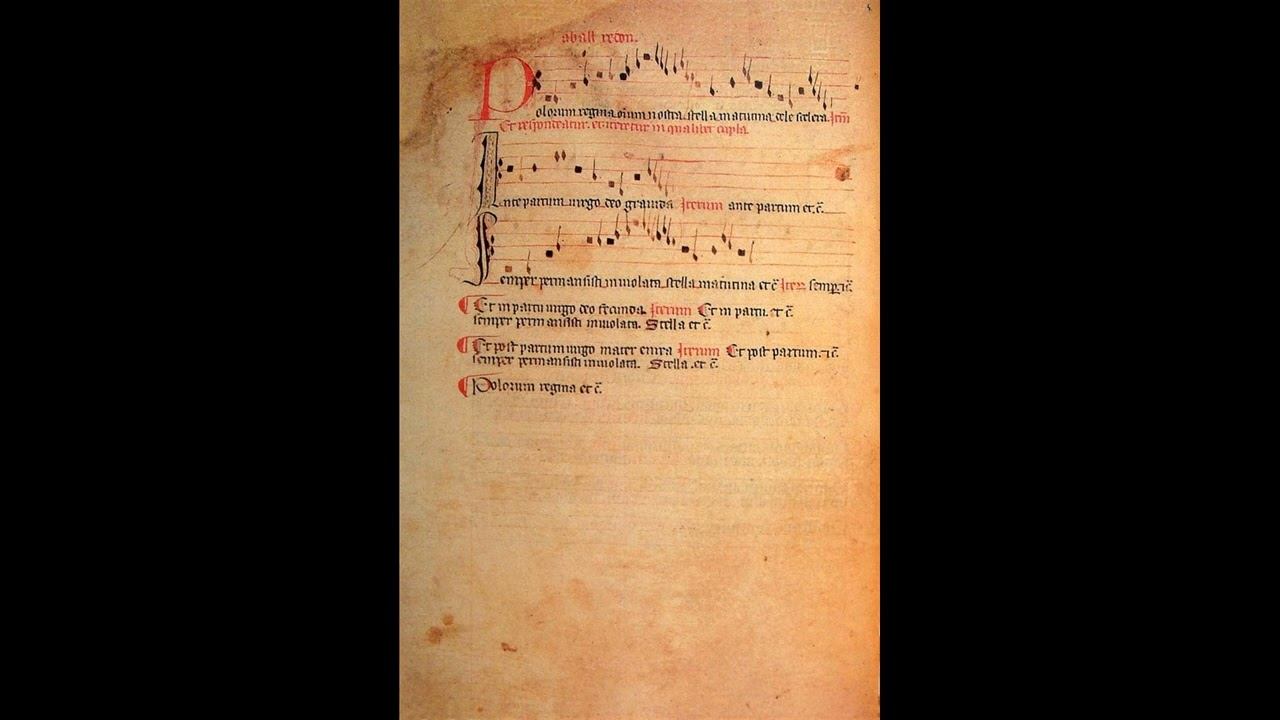 a ball redon.
Polorum regina oium nostra. stella matutina dele scelera. Itm
Et respondeatur. et iteretur in qualibet copla.
Ante partum uirgo deo grauida Iterum ante partum et c̄.
Semper permansisti inuiolata. stella matutina et c̄ Iter semp
Et in partu uirgo deo fecunda. Iterum Et in partu. et c̄.
semper permansisti inuiolata. Stella et c̄.
Et post partum uirgo mater enixa Iterum Et post partum. et c̄.
semper permansisti inuiolata. Stella .et c̄.
Polorum regina et c̄.